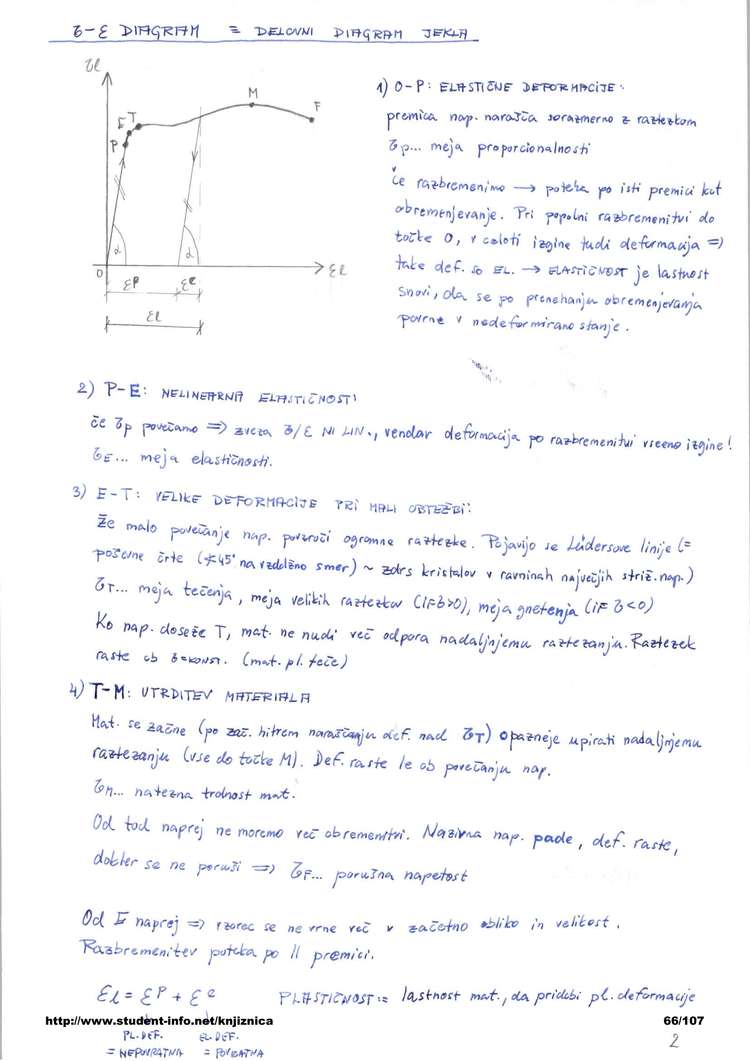 σ-ε DIAGRAM = DELOVNI DIAGRAM JEKLA
σl
M
F
T
E
P
α
α
O
εl
εp
εe
εl
1) O-P: ELASTIČNE DEFORMACIJE:
premica nap. narašča sorazmerno z raztezkom
σp... meja proporcionalnosti
Če razbremenimo → poteka po isti premici kot
obremenjevanje. Pri popolni razbremenitvi do
točke O, v celoti izgine tudi deformacija ⇒
take def. so EL. → ELASTIČNOST je lastnost
snovi, da se po prenehanju obremenjevanja
povrne v nedeformirano stanje.
2) P-E: NELINEARNA ELASTIČNOST:
če σp povečamo ⇒ zveza σ/ε NI LIN., vendar deformacija po razbremenitvi vseeno izgine!
σE... meja elastičnosti.
3) E-T: VELIKE DEFORMACIJE PRI MALI OBTEŽBI:
Že malo povečanje nap. povzroči ogromne raztezke. Pojavijo se Lüdersove linije (=
poševne črte (∡45° na vzdolžno smer) ~ zdrs kristalov v ravninah največjih striž. nap.)
σT... meja tečenja, meja velikih raztezkov (IF σ>0), meja gnetenja (IF σ<0)
Ko nap. doseže T, mat. ne nudi več odpora nadaljnjemu raztezanju. Raztezek
raste ob σ=konst. (mat. pl. teče)
4) T-M: UTRDITEV MATERIALA
Mat. se začne (po zač. hitrem naraščanju def. nad σT) opazneje upirati nadaljnjemu
raztezanju (vse do točke M). Def. raste le ob povečanju nap.
σM... natezna trdnost mat.
Od tod naprej ne moremo več obremeniti. Nazivna nap. pade, def. raste,
dokler se ne poruši ⇒ σF... porušna napetost
Od E naprej ⇒ vzorec se ne vrne več v začetno obliko in velikost.
Razbremenitev poteka po || premici.
εl = εp + εe PLASTIČNOST:= lastnost mat., da pridobi pl. deformacije
http://www.student-info.net/knjiznica 66/107
PL.DEF. EL.DEF. 2
= NEPOVRATNA = POVRATNA